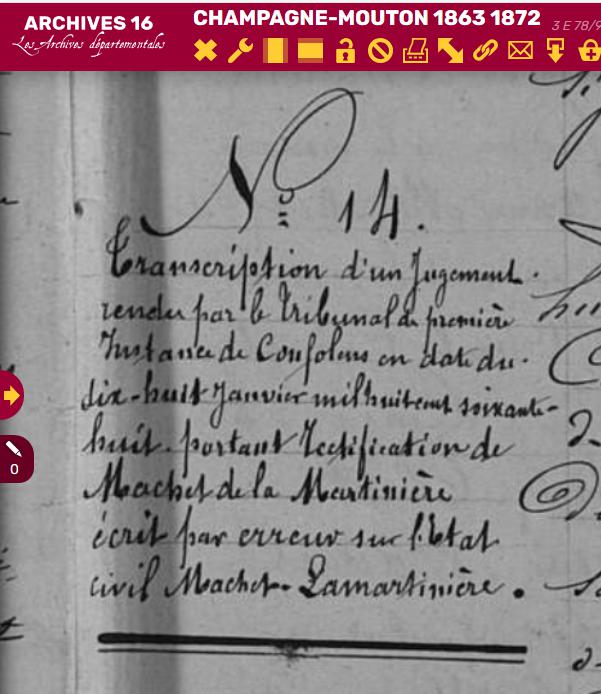 ARCHIVES 16
Les Archives départementales
CHAMPAGNE-MOUTON 1863 1872
3 E 78/9
0
N° 14.
Transcription d'un Jugement
rendu par le tribunal de première
Instance de Confolens en date du
dix-huit Janvier mil huit cent soixante-
huit portant rectification de
Machet de la Martinière
écrit par erreur sur l'Etat
civil Machet-Lamartinière.